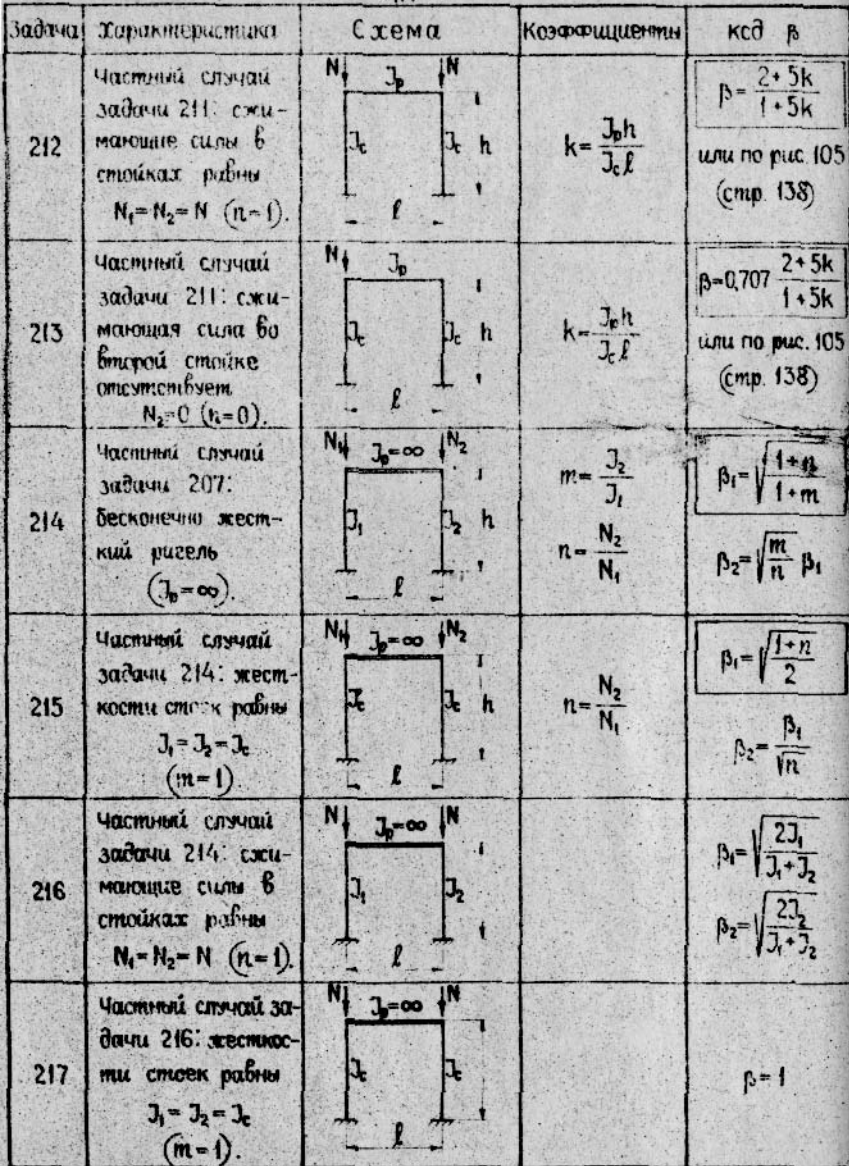 Задача Характеристика Схема Коэффициенты ксд β
212
Частный случай
задачи 211: сжи-
мающие силы в
стойках равны
N₁=N₂=N (n=1).
N N
Jₚ
J_c J_c h
ℓ
k= Jₚh / J_cℓ
β= 2+5k / 1+5k
или по рис. 105
(стр. 138)
213
Частный случай
задачи 211: сжи-
мающая сила во
второй стойке
отсутствует
N₂=0 (n=0).
N Jₚ
J_c J_c h
ℓ
k= Jₚh / J_cℓ
β=0,707 2+5k / 1+5k
или по рис. 105
(стр. 138)
214
Частный случай
задачи 207:
бесконечно жест-
кий ригель
(Jₚ=∞).
N₁ Jₚ=∞ N₂
J₁ J₂ h
ℓ
m= J₂ / J₁
n= N₂ / N₁
β₁=√(1+n / 1+m)
β₂=√(m / n) β₁
215
Частный случай
задачи 214: жест-
кости стоек равны
J₁=J₂=J_c
(m=1)
N₁ Jₚ=∞ N₂
J_c J_c h
ℓ
n= N₂ / N₁
β₁=√(1+n / 2)
β₂= β₁ / √n
216
Частный случай
задачи 214: сжи-
мающие силы в
стойках равны
N₁=N₂=N (n=1).
N Jₚ=∞ N
J₁ J₂
ℓ
β₁=√(2J₁ / J₁+J₂)
β₂=√(2J₂ / J₁+J₂)
217
Частный случай за-
дачи 216: жесткос-
ти стоек равны
J₁=J₂=J_c
(m=1).
N Jₚ=∞ N
J_c J_c
ℓ
β=1